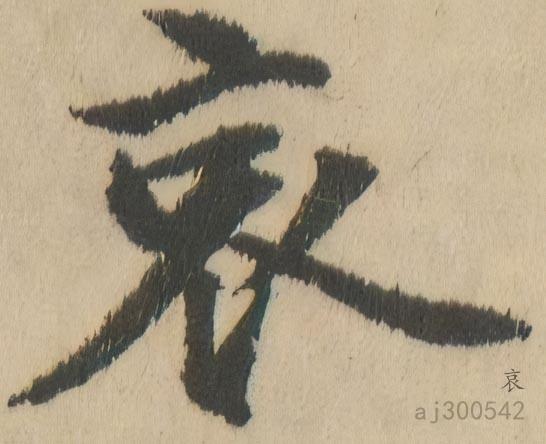 哀
哀
aj300542